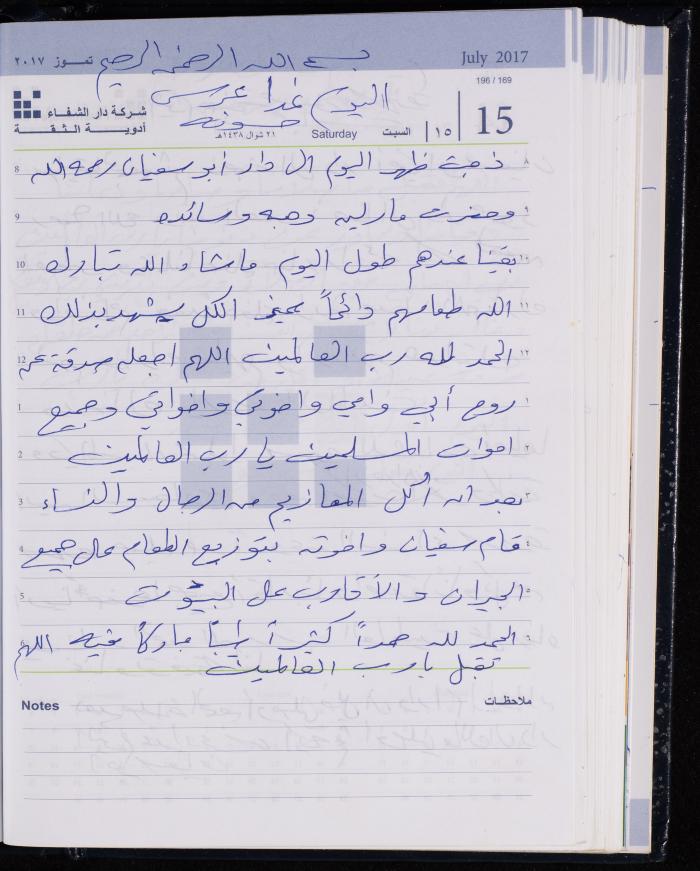 بسم الله الرحمن الرحيم
تموز ٢٠١٧ July 2017
196 / 169
اليوم غدا عرس
حسونه
شركة دار الشفاء
أدوية الثقة
٢١ شوال ١٤٣٨هـ Saturday السبت ١٥ 15
8 ذهبت ظهر اليوم الى دار أبو سفيان رحمه الله ٨
9 وحضرت مارلين وهبه وسائده ٩
10 بقينا عندهم طول اليوم ماشاء الله تبارك ١٠
11 الله طعامهم دائماً الكل يشهد بذلك ١١
12 الحمد لله رب العالمين اللهم اجعله صدقة عن ١٢
1 روح أبي وامي واخوتي واخواتي وجميع ١
2 اموات المسلمين يا رب العالمين ٢
3 بعد ان أكل المعازيم من الرجال والنساء ٣
4 قام سفيان واخوته بتوزيع الطعام على جميع ٤
5 الجيران والأقارب على البيوت ٥
6 الحمد لله حمداً كثيراً طيباً مباركاً فيه اللهم ٦
تقبل يا رب العالمين
Notes ملاحظات